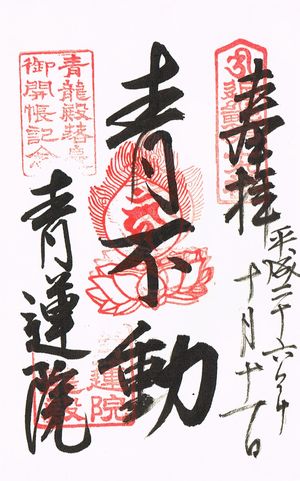 奉拝
平成二十六年
十月十一日
青不動
青蓮院
青龍殿落慶
御開帳記念